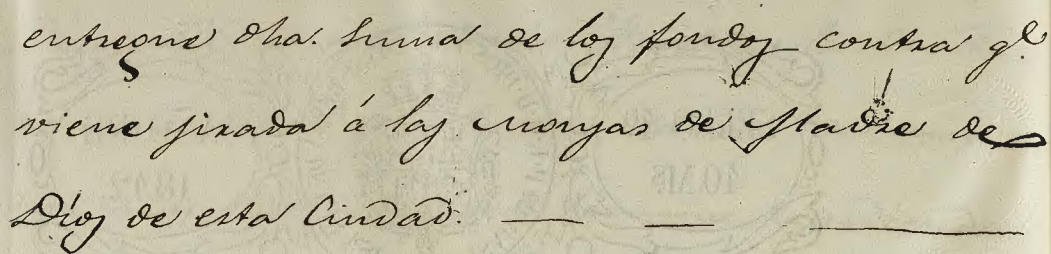 entregue dha. suma de los fondos contra qe.
viene jirada á las monjas de Madre de
Dios de esta Ciudad.